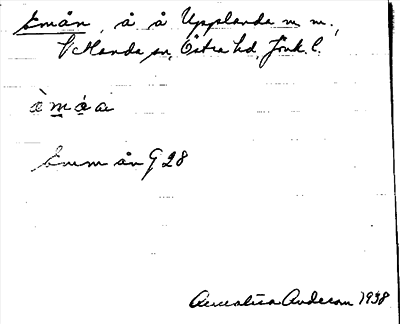 Emån, å å Upplanda m m.,
Alseda sn, Östra hd, Jönk. l.
è m ó a
Emm ån G 28
Annalisa Anderson 1938